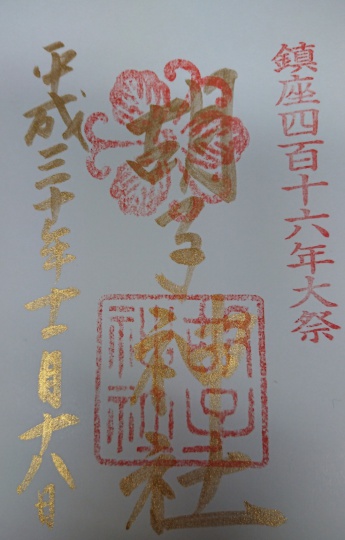 鎮座四百十六年大祭
胡子神社
胡子神社
平成三十年十一月十八日